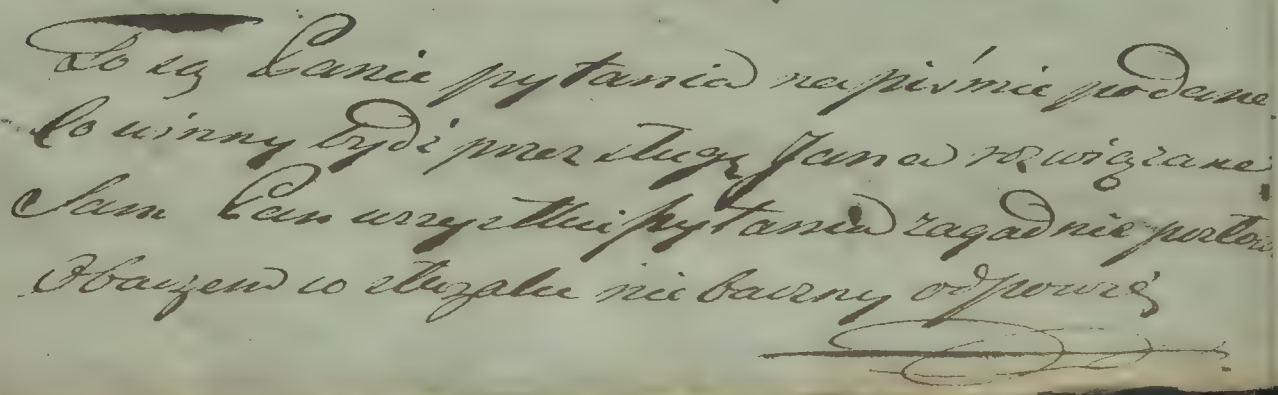 To są Panie pytania na piśmie podane
Co winny bydź przez sługę Jana rozwiązane
Sam Pan wszystkie pytania zagadnie
Obaczem co służalec nie baczny odpowie